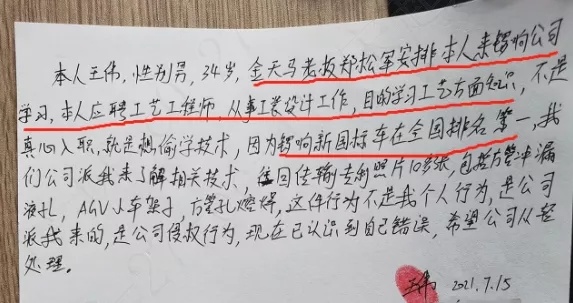 本人王伟，性别男，34岁，金天马老板郑松军安排本人来锣响公司
学习，本人应聘工艺工程师，从事工装设计工作，目的学习工艺方面知识，不是
真心入职，就是想偷学技术，因为锣响新国标车在全国排名第一，我
们公司派我来了解相关技术，回传输专利照片10多张，包括方管冲漏
液孔，AGV小车架子，方管孔熔焊，这件行为不是我个人行为，是公司
派我来的，是公司侵权行为，现在已认识到自己错误，希望公司从轻
处理。
王伟 2021.7.15